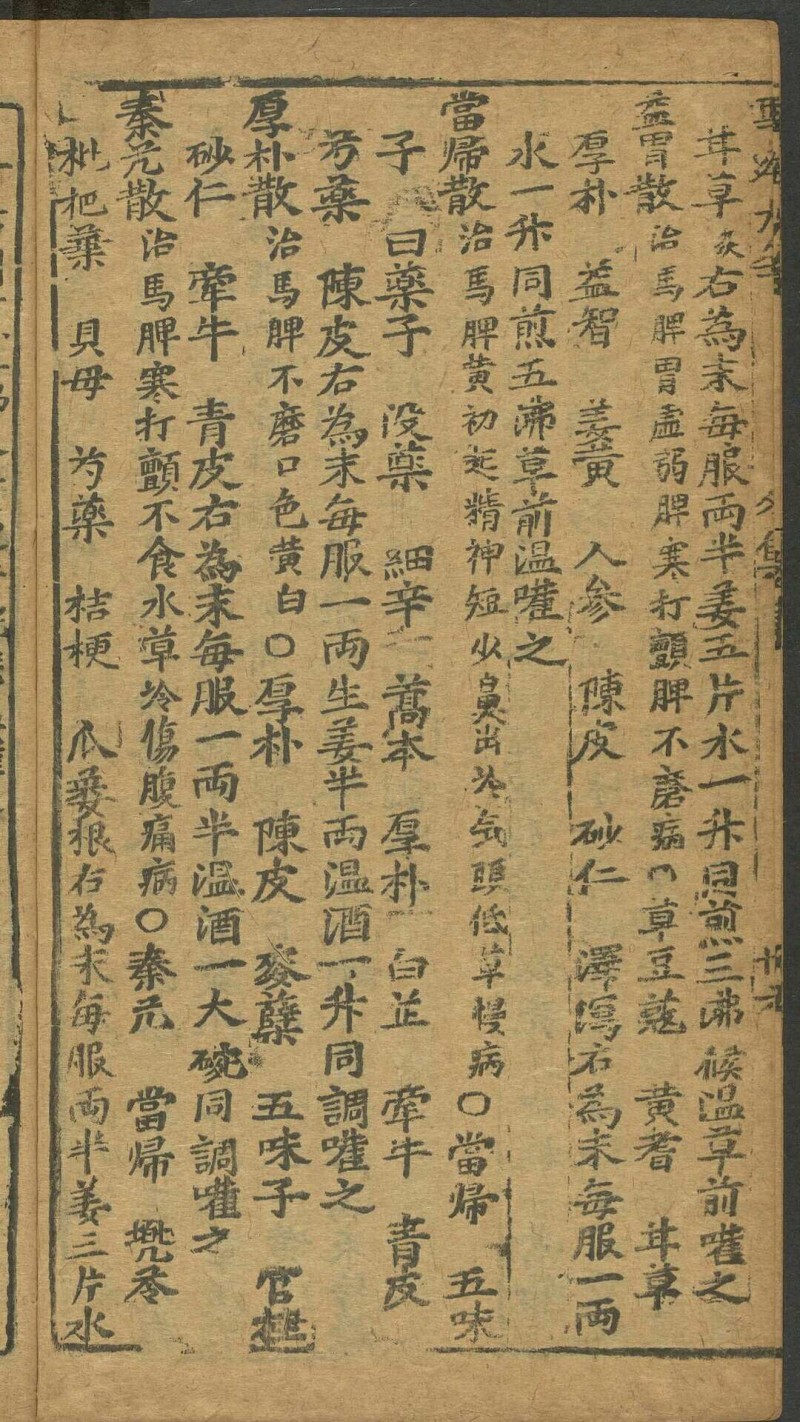 耳草炙右為末每服両半姜五片水一升同煎三沸候温草前嚾之
益胃散治馬脾胃虚弱脾寒打顫脾不磨病○草豆蔻 黄耆 耳草
厚朴 益智 姜黄 人參 陳皮 砂仁 澤瀉右為末每服一両
水一升同煎五沸草前温嚾之
當帰散治馬脾黄初起精神短少鼻出冷気頭低草慢病○當帰 五味
子 曰藥子 没藥 細辛 蒿本 厚朴 白芷 牽牛 青皮
芍藥 陳皮右為末每服一両生姜半両温酒一升同調嚾之
厚朴散治馬脾不磨口色黄白○厚朴 陳皮 麥蘖 五味子 官桂
砂仁 牽牛 青皮右為末每服一両半温酒一大碗同調嚾之
秦艽散治馬脾寒打顫不食水草冷傷腹痛病○秦艽 當帰 茯苓
枇把葉 貝母 芍藥 桔梗 瓜蔞根右為末每服両半姜三片水